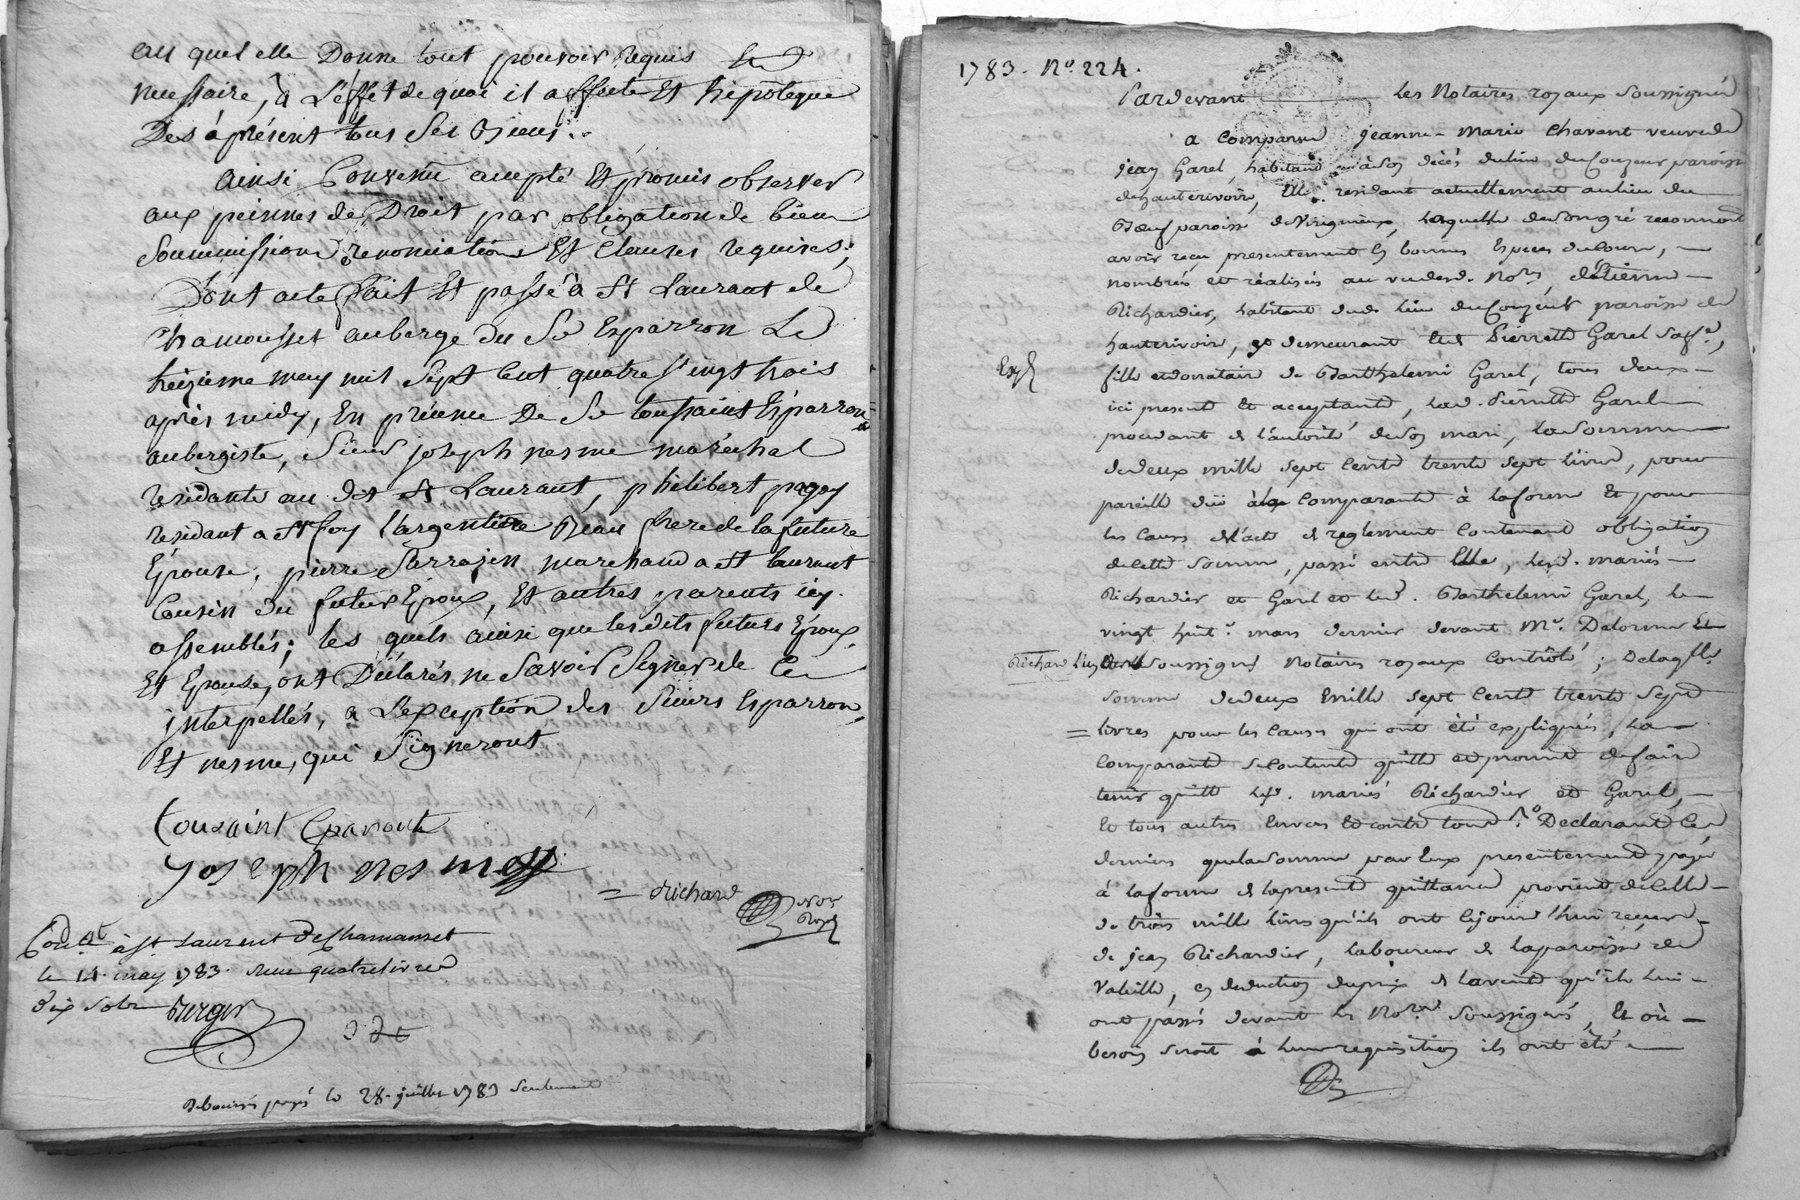 au quel elle Donne tout pouvoir Requis Et
nessaire, à L'effet de quoi il affecte Et hipoteque
Des àprésent tous ses Biens.
ainsi Convenu accepté Et promis observer
aux peinnes de Droit par obligation de biens
Soummission renonciations Et Clauses requises;
Dont acte fait Et passé à St Laurant de
Chamousset auberge du Sr Esparron Le
treizieme may mil Sept Cent quatre vingt trois
après midy, En présence De Sr toussaint Esparron
aubergiste, Sieur joseph nesme maréchal
residants au dt St Laurant, philibert pagay
residant a Ste foy l'argentiere Beau frere de la future
Épouse, pierre Sarrazin marchand a St laurent
Cousin du futur Époux, Et autres parents icy
assemblés; les quels ainsi que les dits futurs Époux
Et Épouse, ont Déclarés ne Savoir Signer de Ce
interpellés, a L'exception des Sieurs Esparron,
Et nesme, qui Signeront
tousaint Eparont
yoseph nesme
= Richard Nore Royal
Con.lé à St Laurent De Chamousset
le 14. may 1783. Reçu quatre livres
dix sols Burger
Debourcés payés le 28. juillet 1783 seulement
1783. No. 224.
Pardevant les Notaires royaux Soussignés
a Comparu jeanne-Marie Chavant veuve de
jean Garel, habitant à son décès du lieu du Couzeur paroisse
de hauterivoir, Elle residant actuellement au lieu du
Boeuf paroisse de Virigneux, laquelle de son gré reconnoit
avoir reçu presentement en bonnes Especes de Cours,
nombrés et réalisés au vu desd. Nores d'étienne
Richardier, habitant dud. lieu du Couzeur paroisse de
hauterivoir, et demeurant Et Pierrette Garel sa fe,
fille et donataire de Barthelemi Garel, tous deux
Exp
ici presents et acceptants, lad. Pierrette Garel
procedant de l'autorité de son mari, la Somme
de deux mille sept Cents trente sept livres, pour
pareille düe à la Comparante à la forme Et pour
les Causes de l'acte de reglement Contenant obligation
de Cette Somme, passé entre Elle, lesd. mariés
Richardier et Garel et led. Barthelemi Garel, le
vingt huit mars dernier devant Me. Delorme Et
Richard l'un des Soussignés Notaires royaux Controlé; De laqlle
Somme de deux mille sept Cents trente sept
= livres pour les Causes qui ont été expliquées, La
Comparante se Contente quitte et promet de faire
tenir quitte lesd. mariés Richardier et Garel,
Et tous autres Envers Et contre tous. Declarant Ces
derniers que la somme par Eux presentement payée
à la forme de la presente quittance provient de Celle
de trois mille livres qu'ils ont Cejourd'hui reçue
de jean Richardier, laboureur de la paroisse de
Valeille, en deduction du prix de la vente qu'ils lui
ont passés devant les Nores Soussignés, Et où
besoin seroit à leur requisition ils ont été